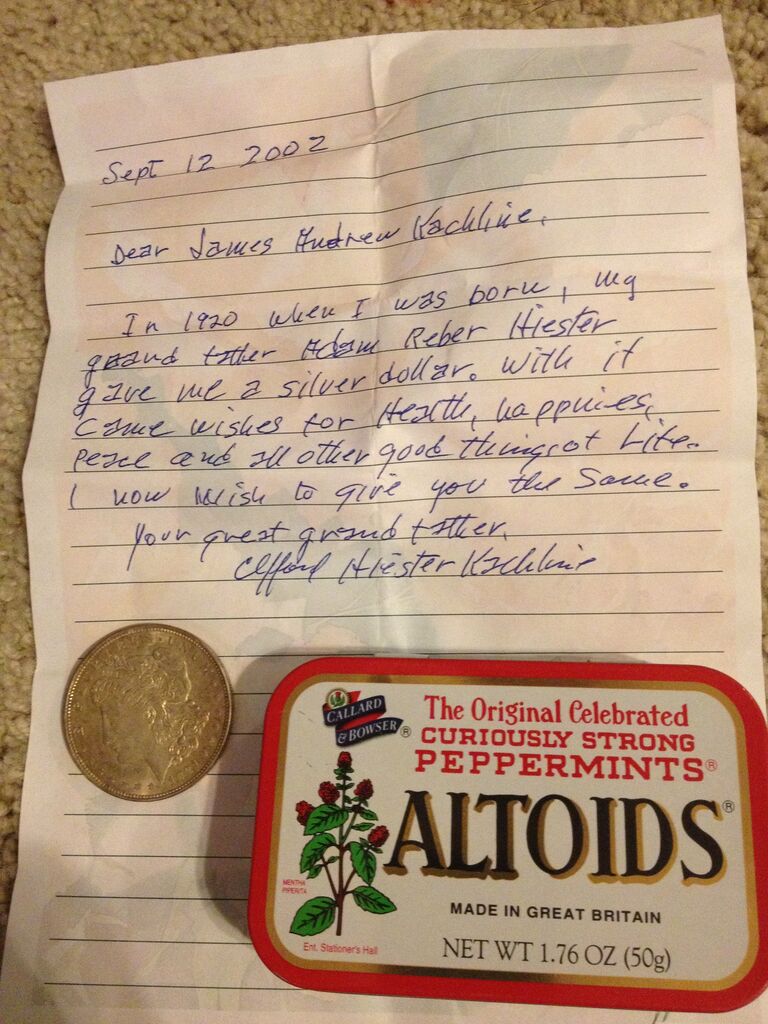 Sept 12 2002
Dear James Andrew Kachline,
In 1920 when I was born, my
grand father Adam Reber Hiester
gave me a silver dollar. With it
came wishes for Health, happiness,
Peace and all other good things of Life.
I now wish to give you the same.
Your great grand father.
Clifford Hiester Kachline
CALLARD
& BOWSER®
The Original Celebrated
CURIOUSLY STRONG
PEPPERMINTS®
ALTOIDS®
MENTHA
PIPERITA
MADE IN GREAT BRITAIN
Ent. Stationer's Hall
NET WT 1.76 OZ (50g)